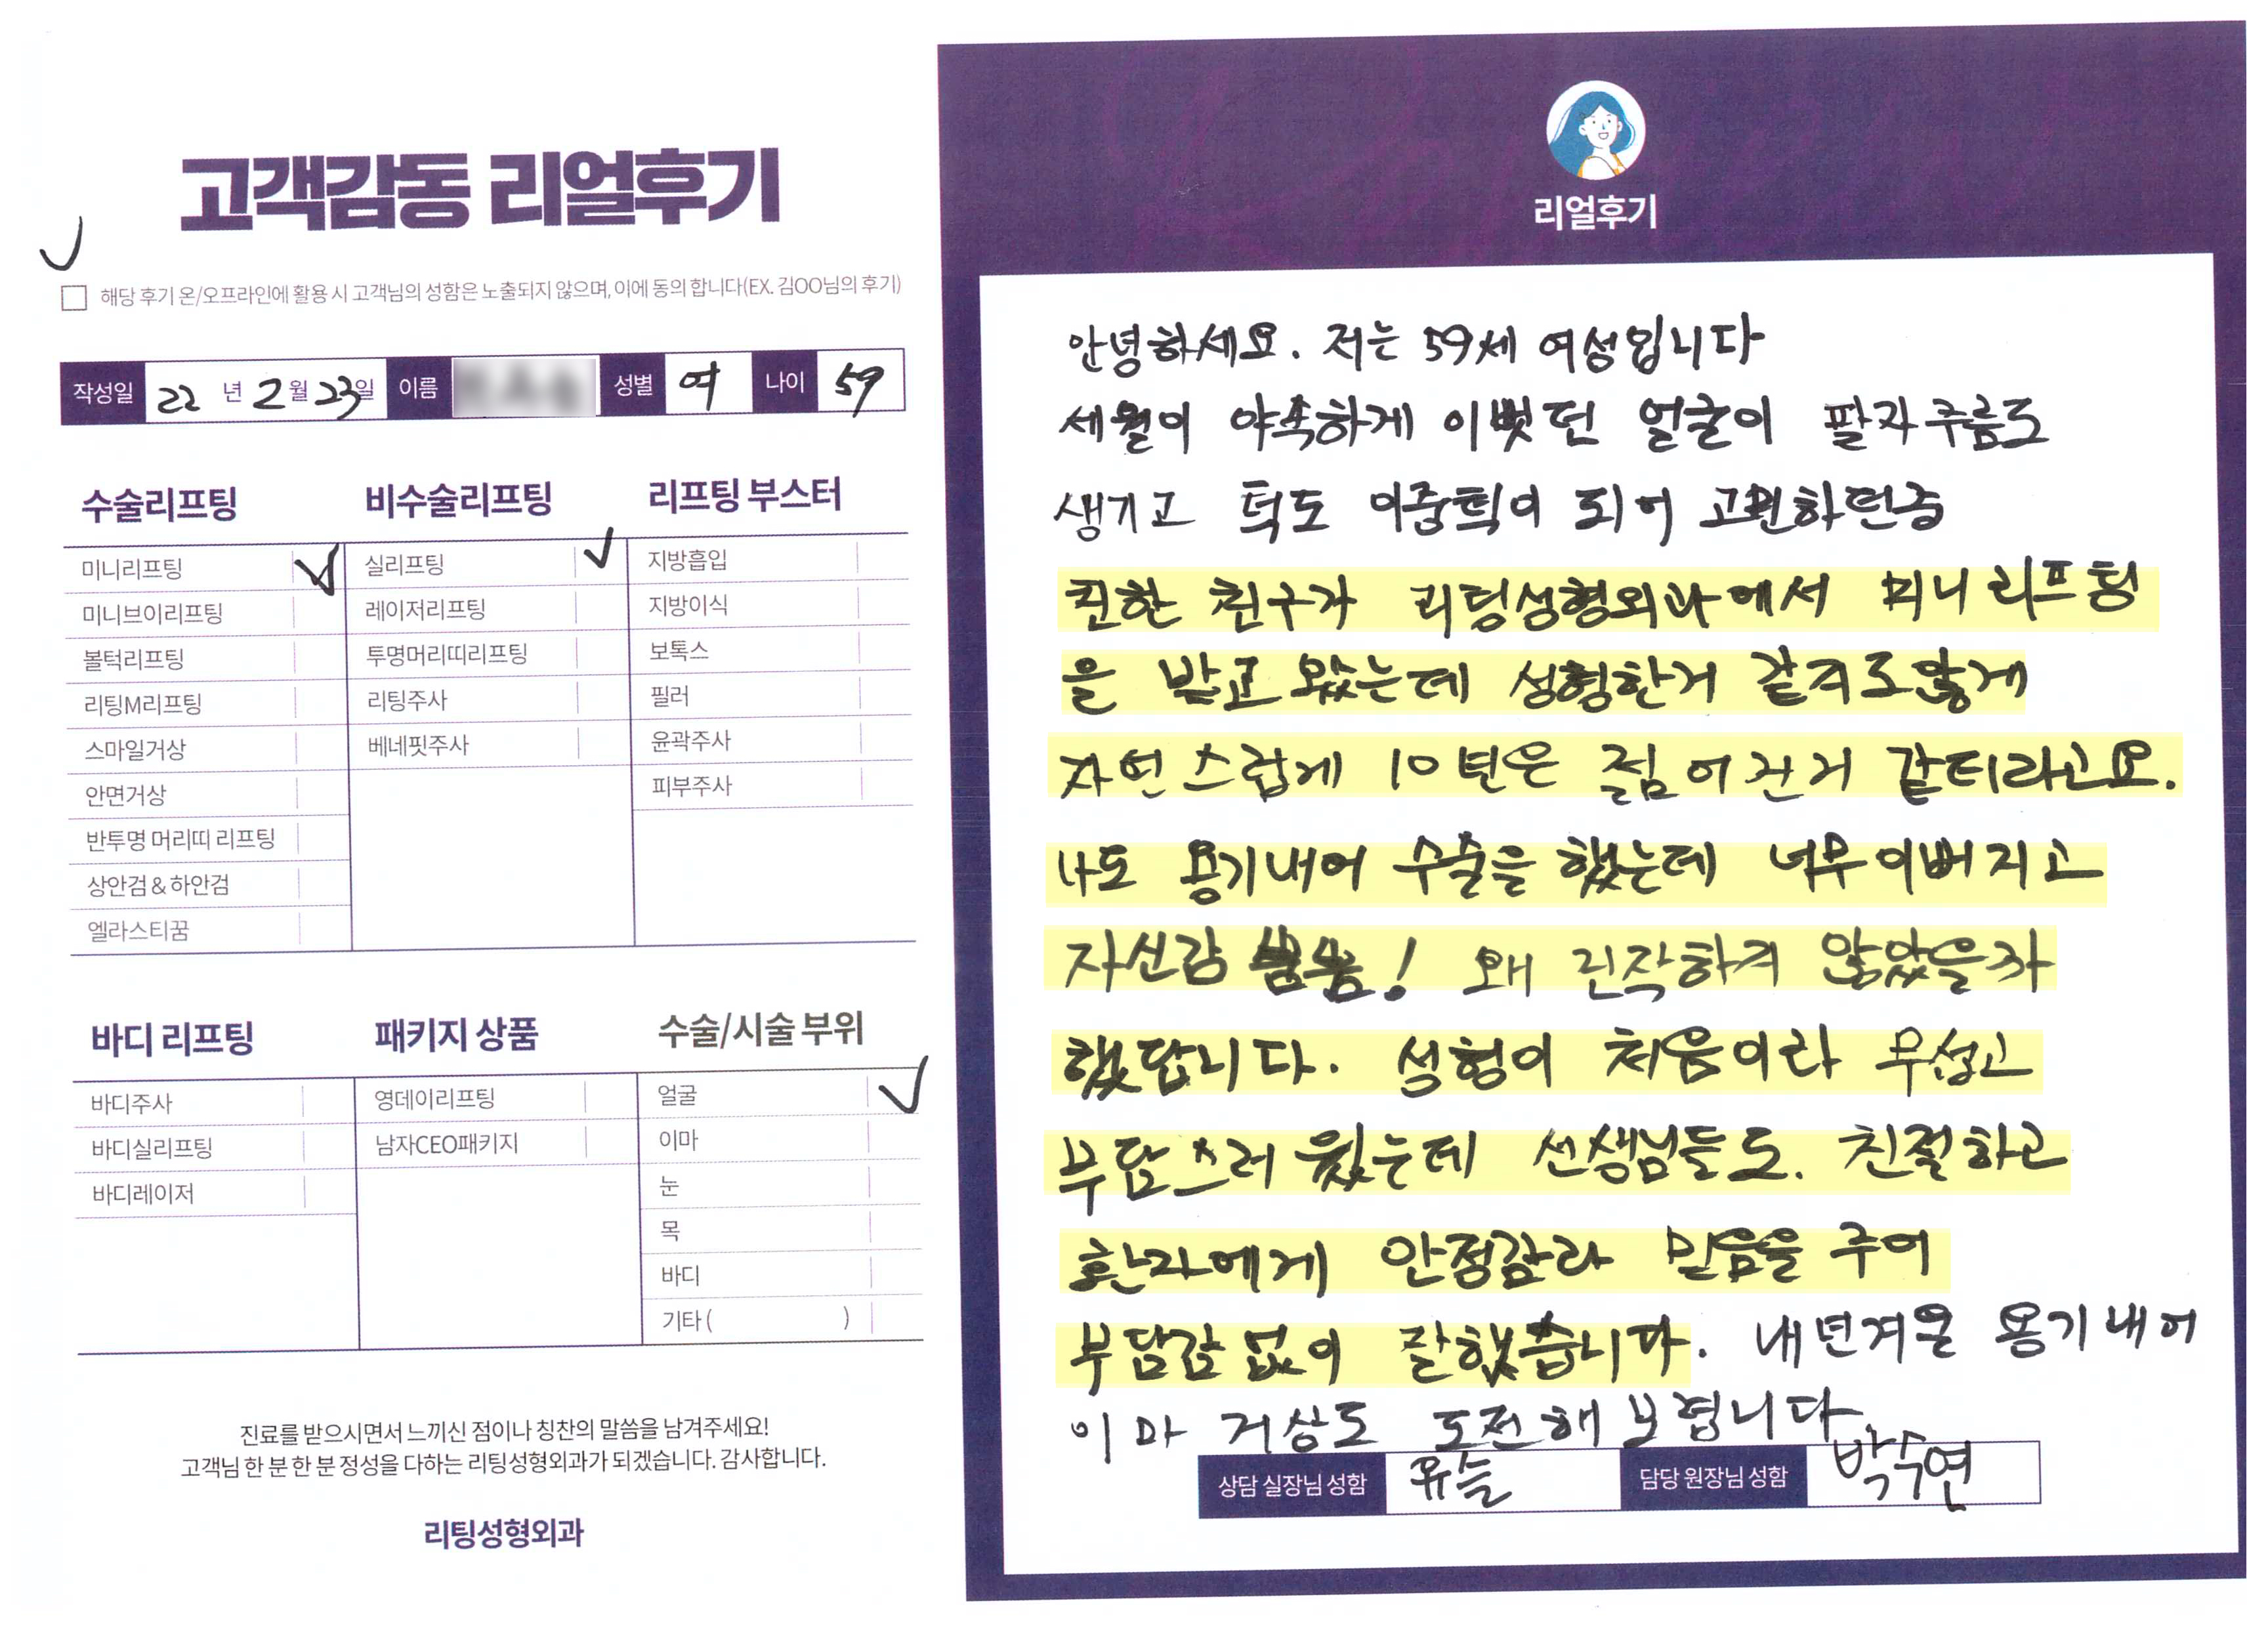 고객감동 리얼후기
해당 후기 온/오프라인에 활용 시 고객님의 성함은 노출되지 않으며, 이에 동의 합니다(EX. 김OO님의 후기)
작성일 22 년 2 월 23일 이름 성별 여 나이 59
수술리프팅
미니리프팅
미니브이리프팅
볼턱리프팅
리팅M리프팅
스마일거상
안면거상
반투명 머리띠 리프팅
상안검 & 하안검
엘라스티꿈
비수술리프팅
실리프팅
레이저리프팅
투명머리띠리프팅
리팅주사
베네핏주사
리프팅 부스터
지방흡입
지방이식
보톡스
필러
윤곽주사
피부주사
바디 리프팅
바디주사
바디실리프팅
바디레이저
패키지 상품
영데이리프팅
남자CEO패키지
수술/시술 부위
얼굴
이마
눈
목
바디
기타 ( )
진료를 받으시면서 느끼신 점이나 칭찬의 말씀을 남겨주세요!
고객님 한 분 한 분 정성을 다하는 리팅성형외과가 되겠습니다. 감사합니다.
리팅성형외과
리얼후기
안녕하세요. 저는 59세 여성입니다
세월이 야속하게 이뻣던 얼굴이 팔자주름도
생기고 턱도 이중턱이 되어 고민하던중
친한 친구가 리팅성형외과에서 미니리프팅
을 받고 왔는데 성형한거 같지도않게
자연스럽게 10년은 젊어진거 같더라고요.
나도 용기내어 수술을 했는데 너무이뻐지고
자신감 뿜뿜! 왜 진작하지 않았을까
했답니다. 성형이 처음이라 무섭고
부담스러웠는데 선생님들도. 친절하고
환자에게 안정감과 믿음을 주어
부담감없이 잘했습니다. 내년겨울 용기내어
이마 거상도 도전해보렵니다.
상담 실장님 성함 유슬 담당 원장님 성함 박수연